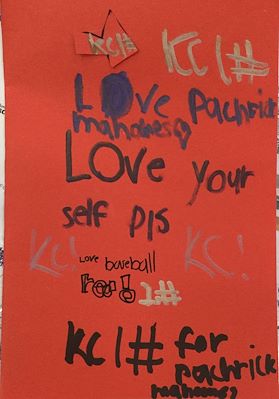 KC1#
KC1#
LOve pachrick
mahomes
LOve your
self pls
KC! KC!
Love baseball
roo!
1#
KC1# for
pachrick
mahomes